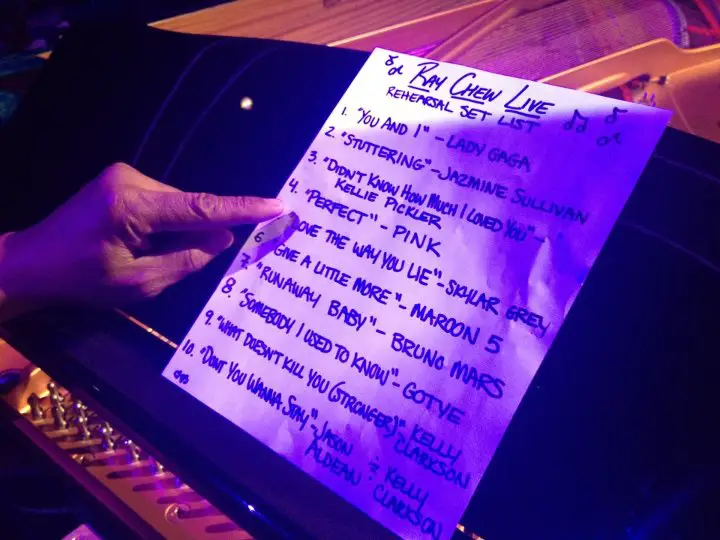 RAY CHEW LIVE
REHEARSAL SET LIST
1. "YOU AND I" - LADY GAGA
2. "STUTTERING" - JAZMINE SULLIVAN
3. "DIDN'T KNOW HOW MUCH I LOVED YOU" -
KELLIE PICKLER
4. "PERFECT" - PINK
LOVE THE WAY YOU LIE" - SKYLAR GREY
6 "GIVE A LITTLE MORE" - MAROON 5
7. "RUNAWAY BABY" - BRUNO MARS
8. "SOMEBODY I USED TO KNOW" - GOTYE
9. "WHAT DOESN'T KILL YOU (STRONGER)" KELLY
CLARKSON
10. "DON'T YOU WANNA STAY" - JASON
ALDEAN & KELLY
CLARKSON